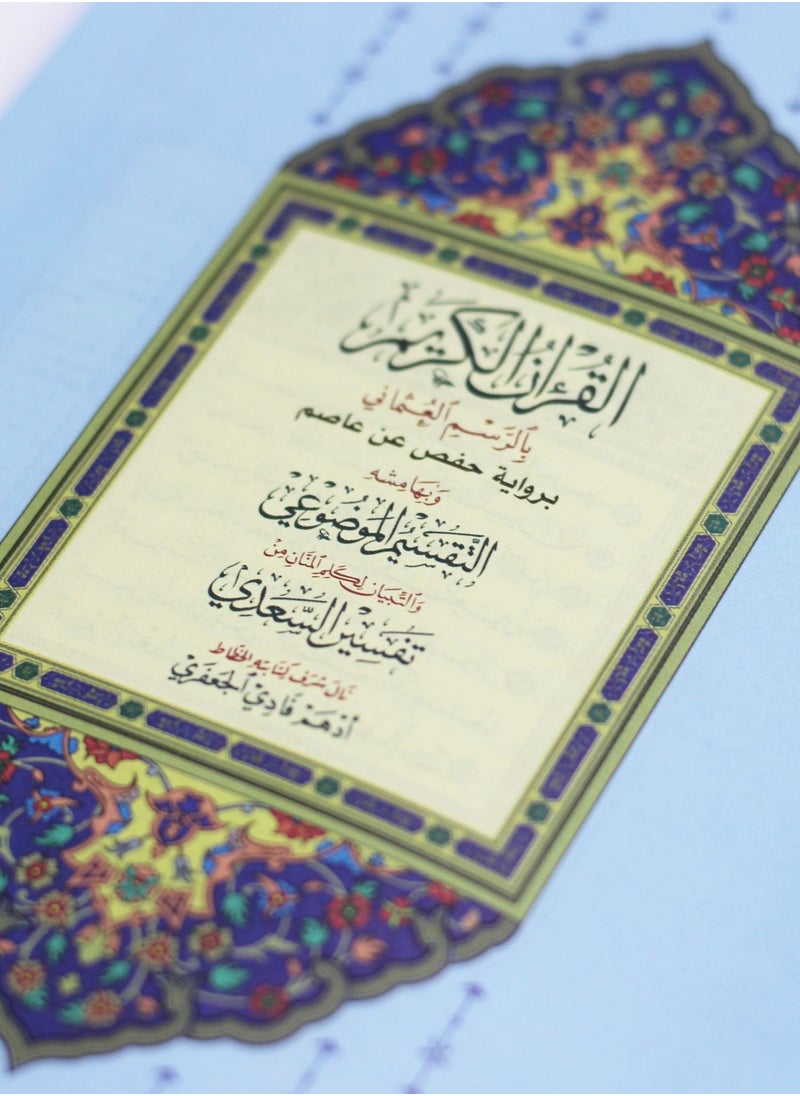 القُرْءَانُ الكَرِيمُ
بِالرَّسْمِ العُثْمَانِي
برواية حفص عن عاصم
وَبِهَامِشِهِ
التَّقْسِيمُ المَوْضُوعِي
وَالتِّبْيَان لِكَلِمِ المَنَّانِ مِنْ
تَفْسِيرِ السَّعْدِي
نَالَ شَرَفَ كِتَابَتِهِ الخَطَّاط
أَدْهَمْ فَادِي الجَعْفَرِي